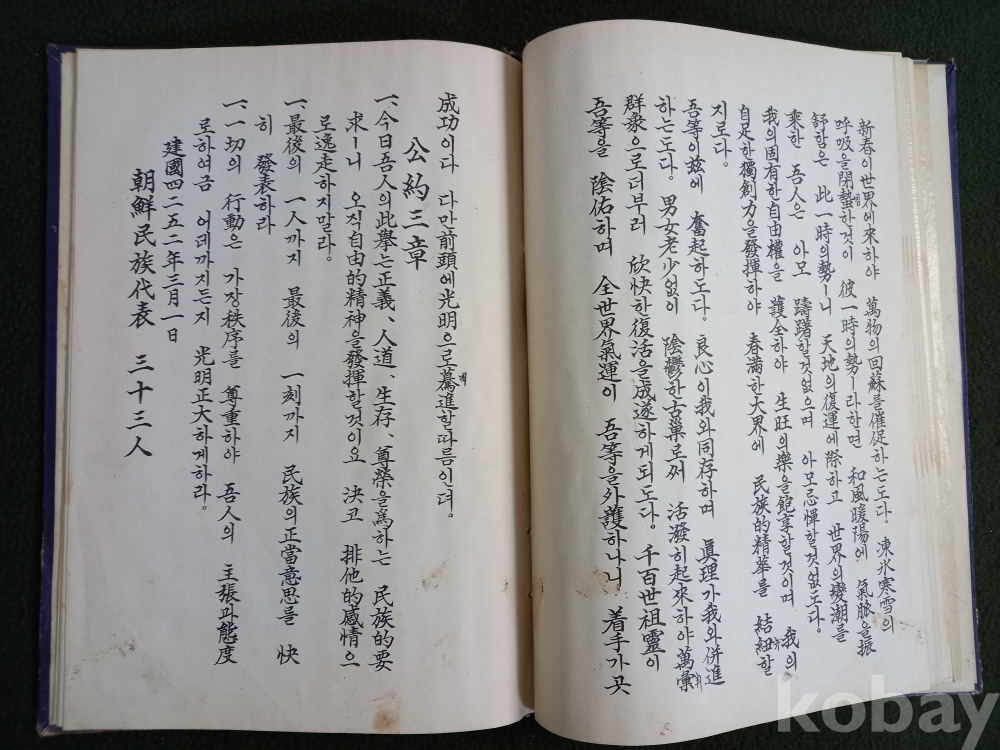 新春이世界에來하야 萬物의回蘇를催促하는도다. 凍氷寒雪의
呼吸을閉蟄한것이 彼一時의勢ㅣ라하면 和風暖陽에 氣脈을振
칩
舒함은 此一時의勢ㅣ니 天地의復運에際하고 世界의變潮를
乘한 吾人은 아모 躊躇할것없으며 아모忌憚할것없도다.
我의固有한自由權을 護全하야 生旺의樂을飽享할것이며 我의
自足한獨創力을發揮하야 春滿한大界에 民族的精華를 結紐할
뉴
지로다.
吾等이玆에 奮起하도다. 良心이我와同存하며 眞理가我와併進
하는도다. 男女老少없이 陰鬱한古巢로써 活潑히起來하야萬彙
휘
群象으로더부러 欣快한復活을成遂하게되도다. 千百世祖靈이
吾等을 陰佑하며 全世界氣運이 吾等을外護하나니 着手가곳
成功이다 다만前頭에光明으로驀進할따름인뎌.
맥
公約三章
一、今日吾人의此擧는正義、人道、生存、尊榮을爲하는 民族的要
求ㅣ니 오직自由的精神을發揮할것이오 決고 排他的感情으
로逸走하지말라.
一、最後의 一人까지 最後의 一刻까지 民族의正當意思를 快
히 發表하라
一、一切의 行動은 가장秩序를 尊重하야 吾人의 主張과態度
로하여금 어데까지든지 光明正大하게하라.
建國四二五二年三月一日
朝鮮民族代表 三十三人
kobay